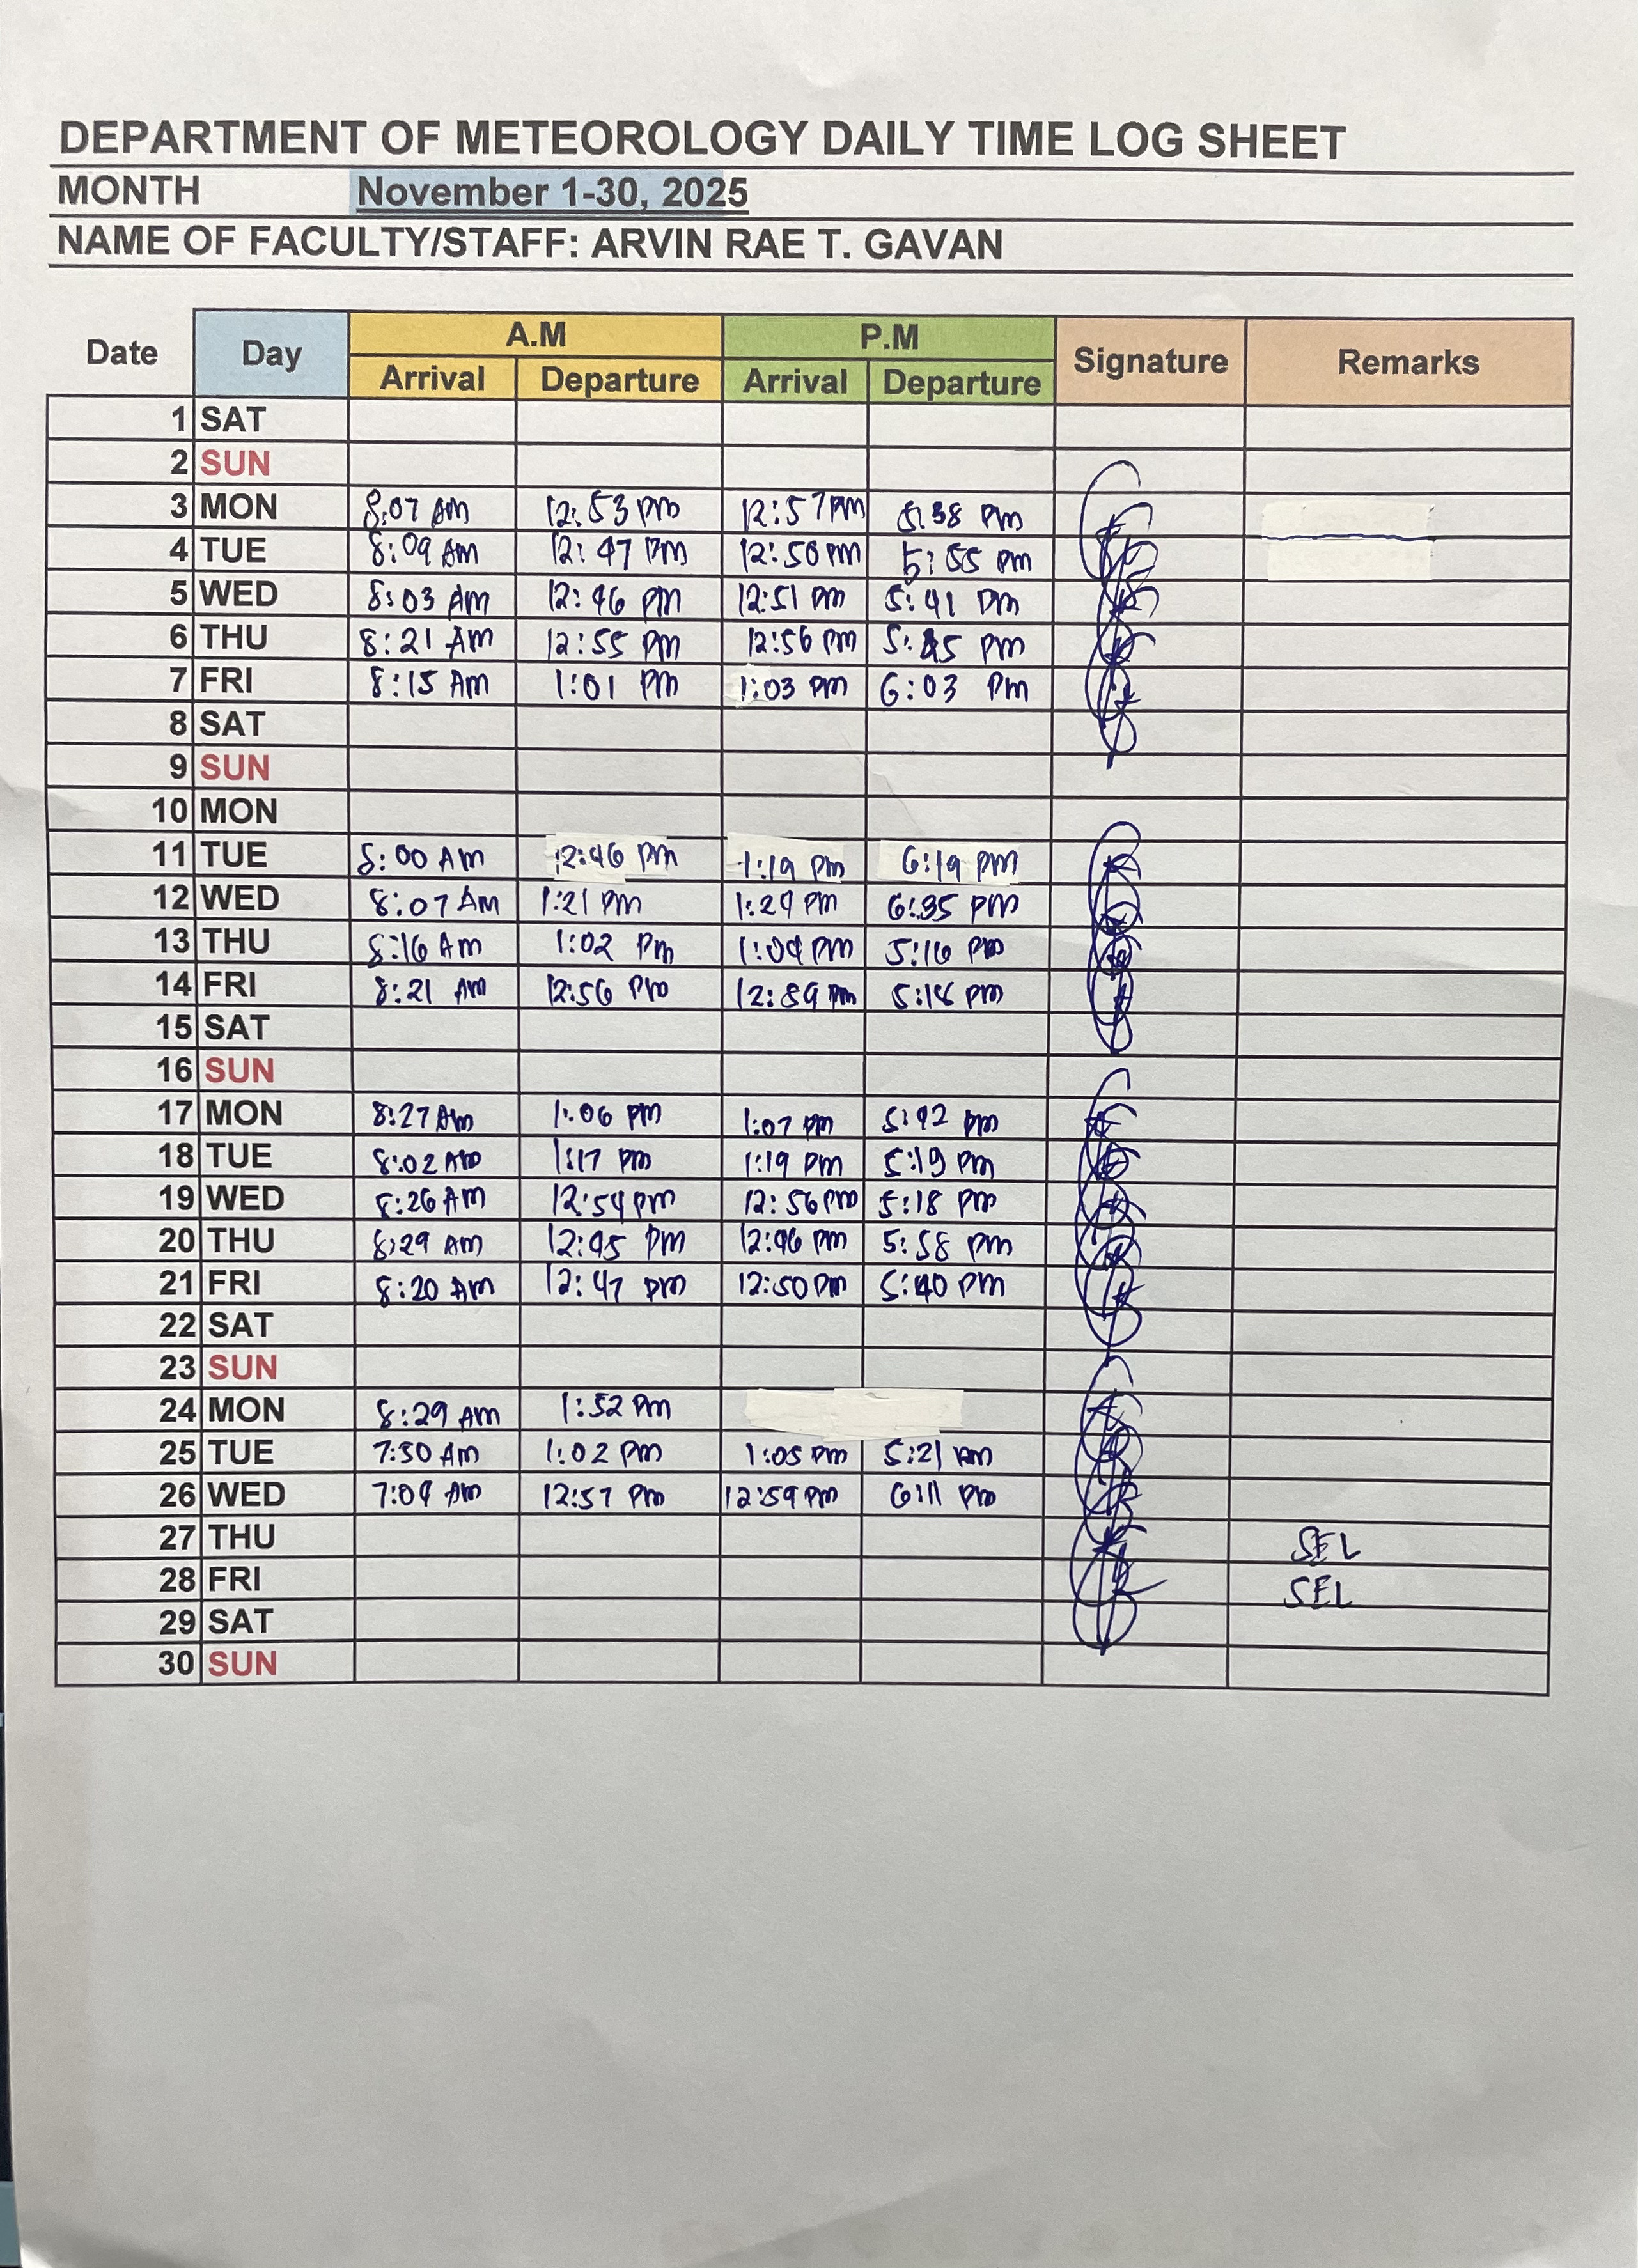 DEPARTMENT OF METEOROLOGY DAILY TIME LOG SHEET
MONTH November 1-30, 2025
NAME OF FACULTY/STAFF: ARVIN RAE T. GAVAN
Date Day A.M P.M Signature Remarks
Arrival Departure Arrival Departure
1 SAT
2 SUN
3 MON 8:07 AM 12:53 PM 12:57 PM 5:38 PM
4 TUE 8:09 AM 12:47 PM 12:50 PM 5:55 PM
5 WED 8:03 AM 12:46 PM 12:51 PM 5:41 PM
6 THU 8:21 AM 12:55 PM 12:56 PM PM
7 FRI 8:15 AM 1:01 PM 1:03 PM 6:03 PM
8 SAT
9 SUN
10 MON
11 TUE 8:00 AM 12:46 PM 1:19 PM 6:19 PM
12 WED 8:07 AM 1:21 PM 1:29 PM 6:35 PM
13 THU 8:16 AM 1:02 PM 1:04 PM 5:16 PM
14 FRI 8:21 AM 12:56 PM 12:59 PM PM
15 SAT
16 SUN
17 MON 8:27 AM 1:06 PM 1:07 PM 5:42 PM
18 TUE 8:02 AM 1:17 PM 1:19 PM 5:19 PM
19 WED 8:26 AM 12:54 PM 12:56 PM 5:18 PM
20 THU 8:29 AM 12:45 PM 12:46 PM 5:58 PM
21 FRI 8:20 AM 12:47 PM 12:50 PM 5:40 PM
22 SAT
23 SUN
24 MON 8:29 AM 1:52 PM
25 TUE 7:30 AM 1:02 PM 1:05 PM 5:21
26 WED 7:09 AM 12:57 PM 12:59 PM 6:11 PM
27 THU SEL
28 FRI SEL
29 SAT
30 SUN